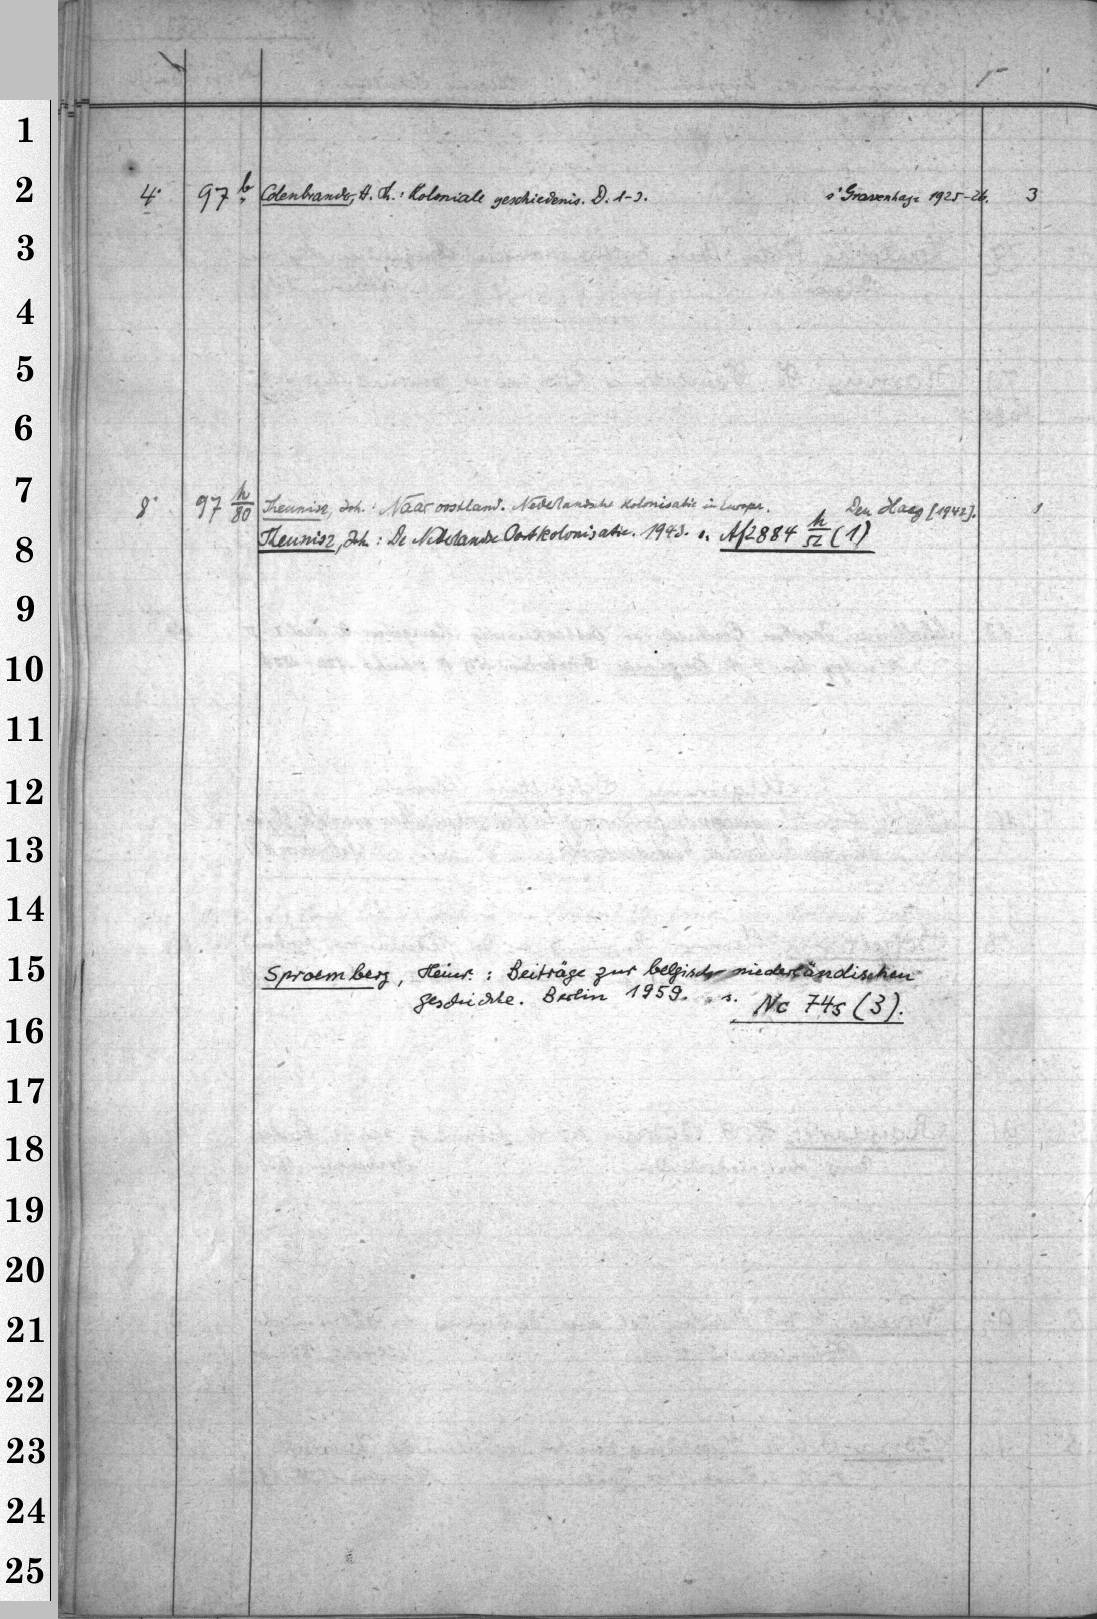 1
2
4° 97 b Colenbrander, H. Th.: Koloniale geschiedenis. D. 1-3. s'Gravenhage 1925-26. 3
3
4
5
6
7
8° 97 h/80 Theunisz, Joh.: Naar oostland. Nederlandsche Kolonisatie in Europa. Den Haag [1942]. 1
8
Theunisz, Joh.: De Nederlandse Oostkolonisatie. 1943. s. Af 2884 h/52 (1)
9
10
11
12
13
14
15
Sproemberg, Heinr.: Beiträge zur belgisch-niederländischen
geschichte. Berlin 1959. s. Nc 745 (3).
16
17
18
19
20
21
22
23
24
25